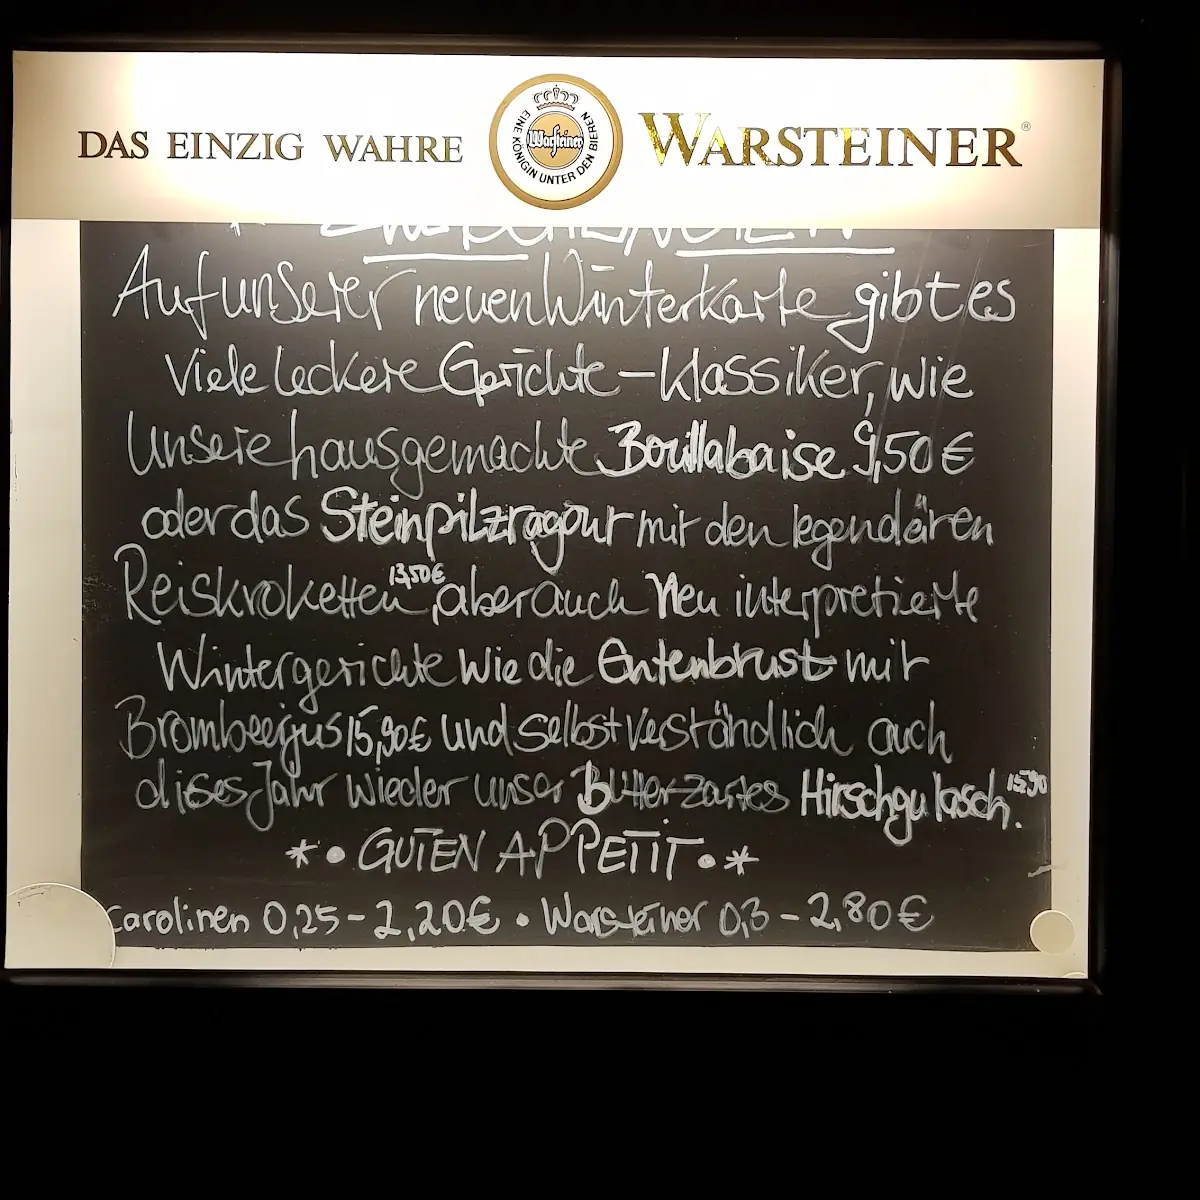 DAS EINZIG WAHRE WARSTEINER®
EINE KÖNIGIN UNTER DEN BIEREN
Warsteiner
Auf unserer neuen Winterkarte gibt es
viele leckere Gerichte - Klassiker, wie
unsere hausgemachte Bouillabaise 9,50€
oder das Steinpilzragout mit den legendären
Reiskroketten 13,50€, aber auch Neu interpretierte
Wintergerichte wie die Entenbrust mit
Brombeerjus 15,90€ und selbstverständlich auch
dieses Jahr wieder unser Butter-zartes Hirschgulasch. 15,90
* • GUTEN APPETIT • *
Carolinen 0,25 - 2,20€ • Warsteiner 0,3 - 2,80€